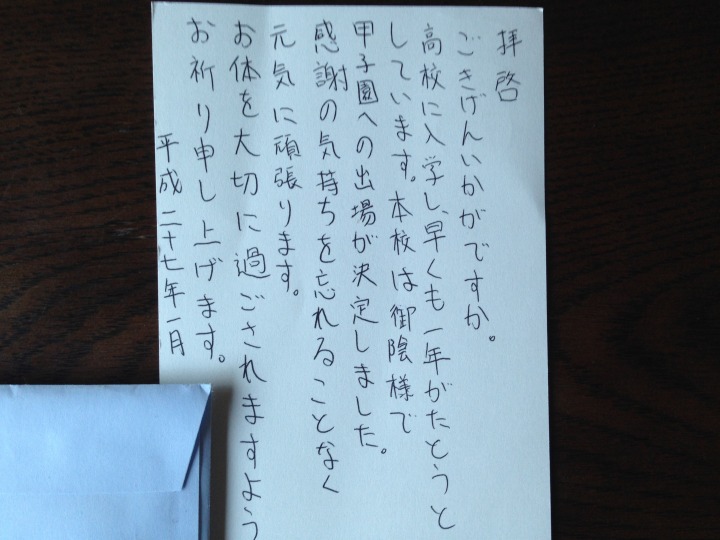 拝啓
ごきげんいかがですか。
高校に入学し、早くも一年がたとうと
しています。本校は御陰様で
甲子園への出場が決定しました。
感謝の気持ちを忘れることなく
元気に頑張ります。
お体を大切に過ごされますよう
お祈り申し上げます。
平成二十七年一月